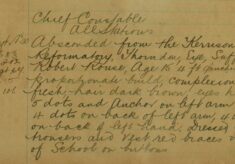 Chief Constable
All Stations
Absconded from the Kerrison
Reformatory, Thorndon, Eye, Suff
Robert Rouse, Age 16
proportionate build, complexion
fresh, hair dark brown, eyes
5 dots and Anchor on left arm
4 dots on back of left arm,
on back of left hand, dressed
trousers and vest red braces
of School on buttons